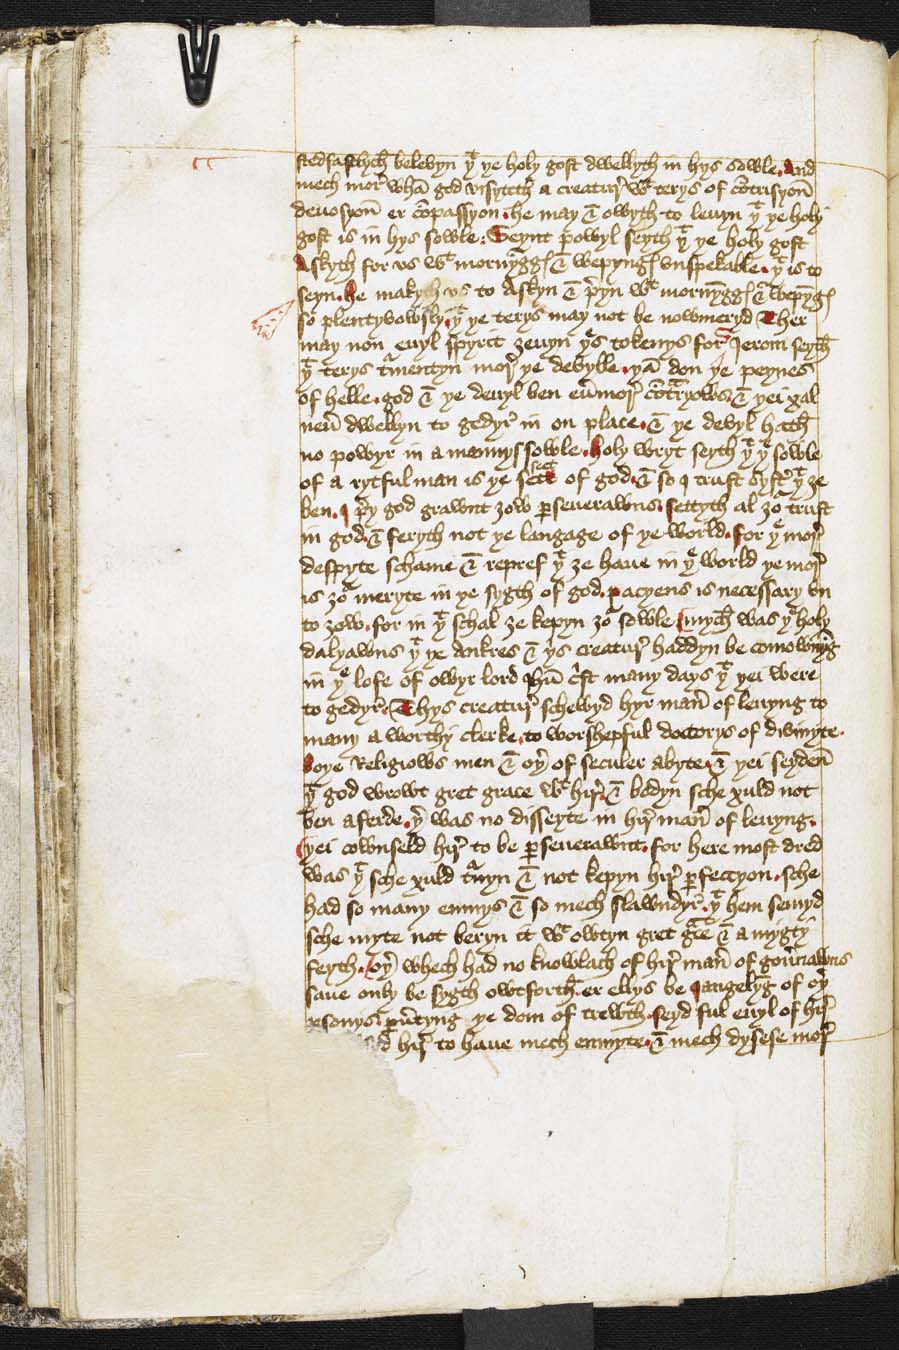 stedfastlych belevyn þͭ þe holy gost dwellyth in hys sowle. And
mech mor̛ whā god visyteth a creatur̛ wͭ terys of cōtrisyon̄
deuosyon̄ er cōpassyon. he may & owyth to leuyn þͭ þe holy
gost is in hys sowle. Seynt powyl seyth þͭ þe holy gost
Askyth for vs wͭ mornyngg̛ & wepyng̛ vnspekable. þͭ is to
seyn. he makyth vs to Askyn & p̛yn wͭ mornyngg̛ & wepyng̛
so plentyvowsly. þͭ þe terys may not be nowmeryd Ther
may non̄ euyl spyrit ȝeuyn þ̛s tokenys for Jerom seyth
þͭ terys t̛mentyn mor̛ þe devylle. þā don þe peynes
of helle. god & þe deuyl ben eu̅mor̛ cōtᵃryows. & þei xal
neu̅ dwellyn to gedyr̛ in on place. & þe devyl hath
no powyr in a mannys sowle. holy wryt seyth þͭ þᵉ sowle
of a rytful man is þe sete of god. & so I trust syst̛ þͭ ȝe
ben. I p̛y god grawnt ȝow p̱seuerawns. settyth al ȝoͬ trust
in god. & feryth not þe langage of þe world. for þᵉ mor̛
despyte schame & repref þͭ ȝe haue in þᵉ world þe mor̛
is ȝoͬ meryte in þe sygth of god. pacyens is necessary vn
to ȝow. for in þͭ schal ȝe kepyn ȝoͬ sowle mych was þᵉ holy
dalyawns þͭ þe ankres & þs creatur̛ haddyn be comownyng
in þᵉ lofe of owyr lord Jhū c̛st many days þͭ þei were
to gedyr̛. Thys creatur̛ schewyd hyr man̛ of leuyng to
many a worthy clerke. to worshepful doctorys of divinyte.
boþe Religiows men & oþ̛ of seculer abyte. & þei seyden̄
þͭ god wrowt gret grace wͭ hir̛. & bodyn sche xuld not
ben aferde. þ̛ was no disseyte in hir̛ man̛ of leuyng.
þei cownseld hir̛ to be p̱seuerawnt. for here most dred
was þͭ sche xuld t̛nyn & not kepyn hir̛ p̱feccyon. sche
had so many enmys & so mech slawndyr̛. þͭ hem semyd
sche myte not beryn it wͭ owtyn gret gᵃce & a mygty
feyth. oþ̛ whech had no knowlach of hir̛ man̛ of gou̅nawns
saue only be sygth owtforth. er ellys be Jangelyg of oþ̛
p̱sonys p̱u̅tyng þe dom of trewth. seyd ful euyl of hir̛
hir̛ to haue mech enmyte. & mech dysese mor̛